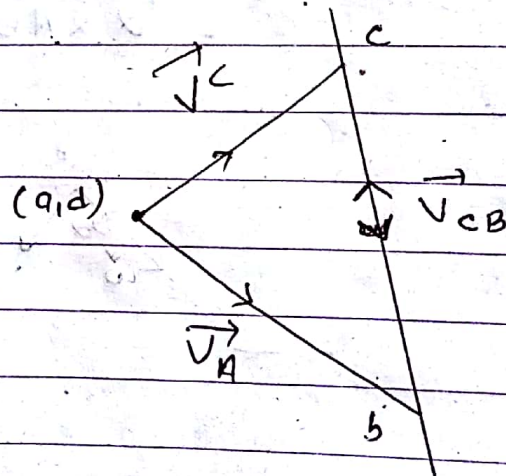 c
V⃗ C
(a,d)
V⃗ CB
V⃗ A
b